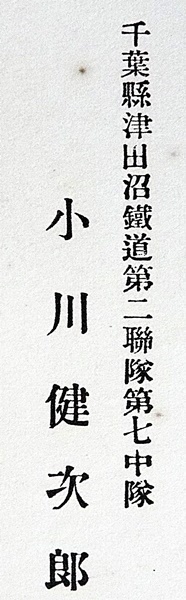 千葉縣津田沼鐵道第二聯隊第七中隊
小川健次郎